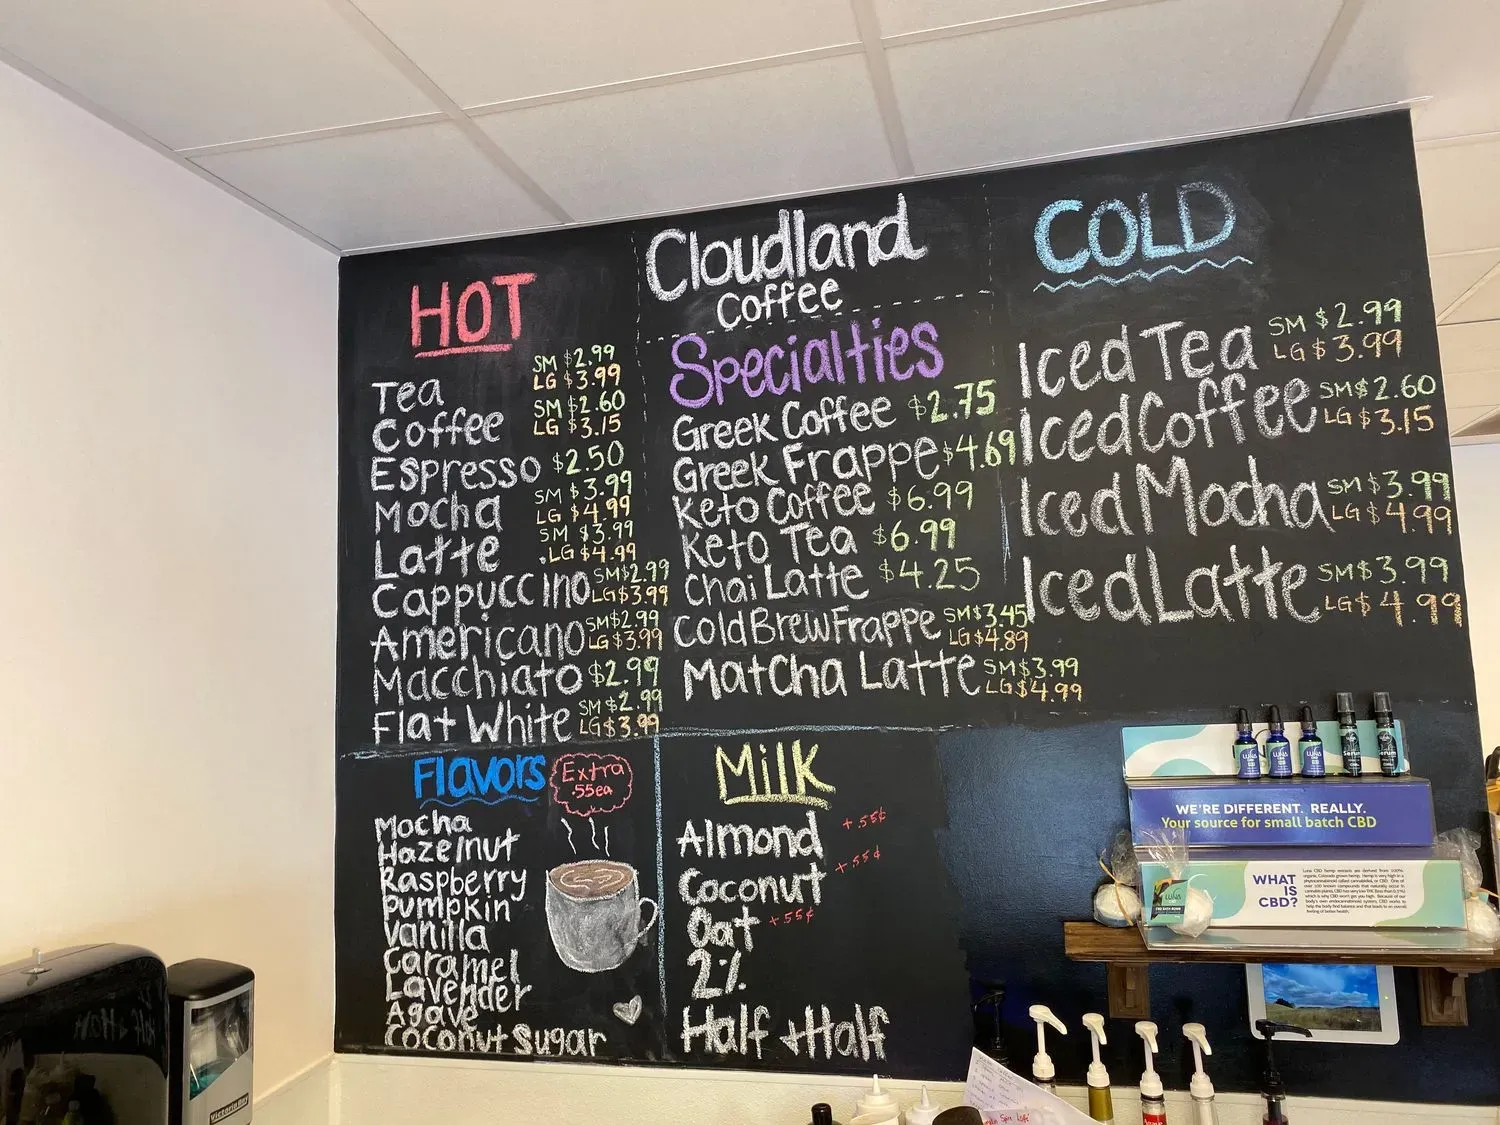 HOT
Tea SM $2.99
LG $3.99
Coffee SM $2.60
LG $3.15
Espresso $2.50
Mocha SM $3.99
LG $4.99
Latte SM $3.99
LG $4.99
Cappuccino SM $2.99
LG $3.99
Americano SM $2.99
LG $3.99
Macchiato $2.99
Flat White SM $2.99
LG $3.99
Cloudland
Coffee
Specialties
Greek Coffee $2.75
Greek Frappe $4.69
Keto Coffee $6.99
Keto Tea $6.99
Chai Latte $4.25
Cold Brew Frappe SM $3.45
LG $4.89
Matcha Latte SM $3.99
LG $4.99
COLD
Iced Tea SM $2.99
LG $3.99
Iced Coffee SM $2.60
LG $3.15
Iced Mocha SM $3.99
LG $4.99
Iced Latte SM $3.99
LG $4.99
Flavors
Extra
.55ea
Mocha
Hazelnut
Raspberry
Pumpkin
Vanilla
Caramel
Lavender
Agave
Coconut Sugar
Milk
Almond +.55¢
Coconut +.55¢
Oat +.55¢
2%
Half + Half
LUNA LUNA LUNA Serum Serum
WE'RE DIFFERENT. REALLY.
Your source for small batch CBD
WHAT
IS
CBD?
LUNA